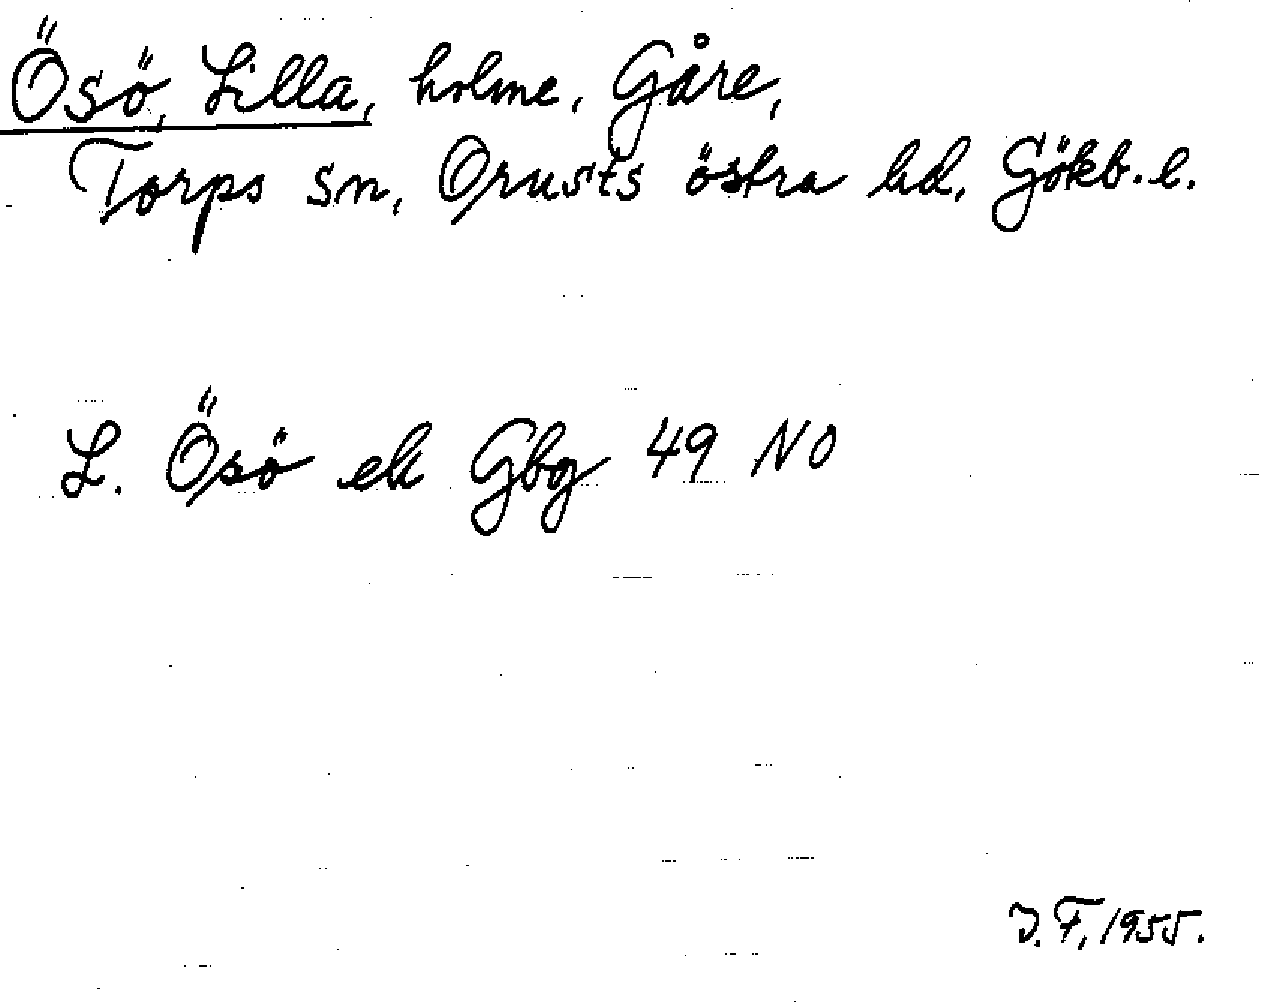 Ösö, Lilla, holme, Gåre,
Torps sn, Orusts östra hd, Gökb. l.
L. Ösö ek Gbg 49 NO
J. F. 1955.